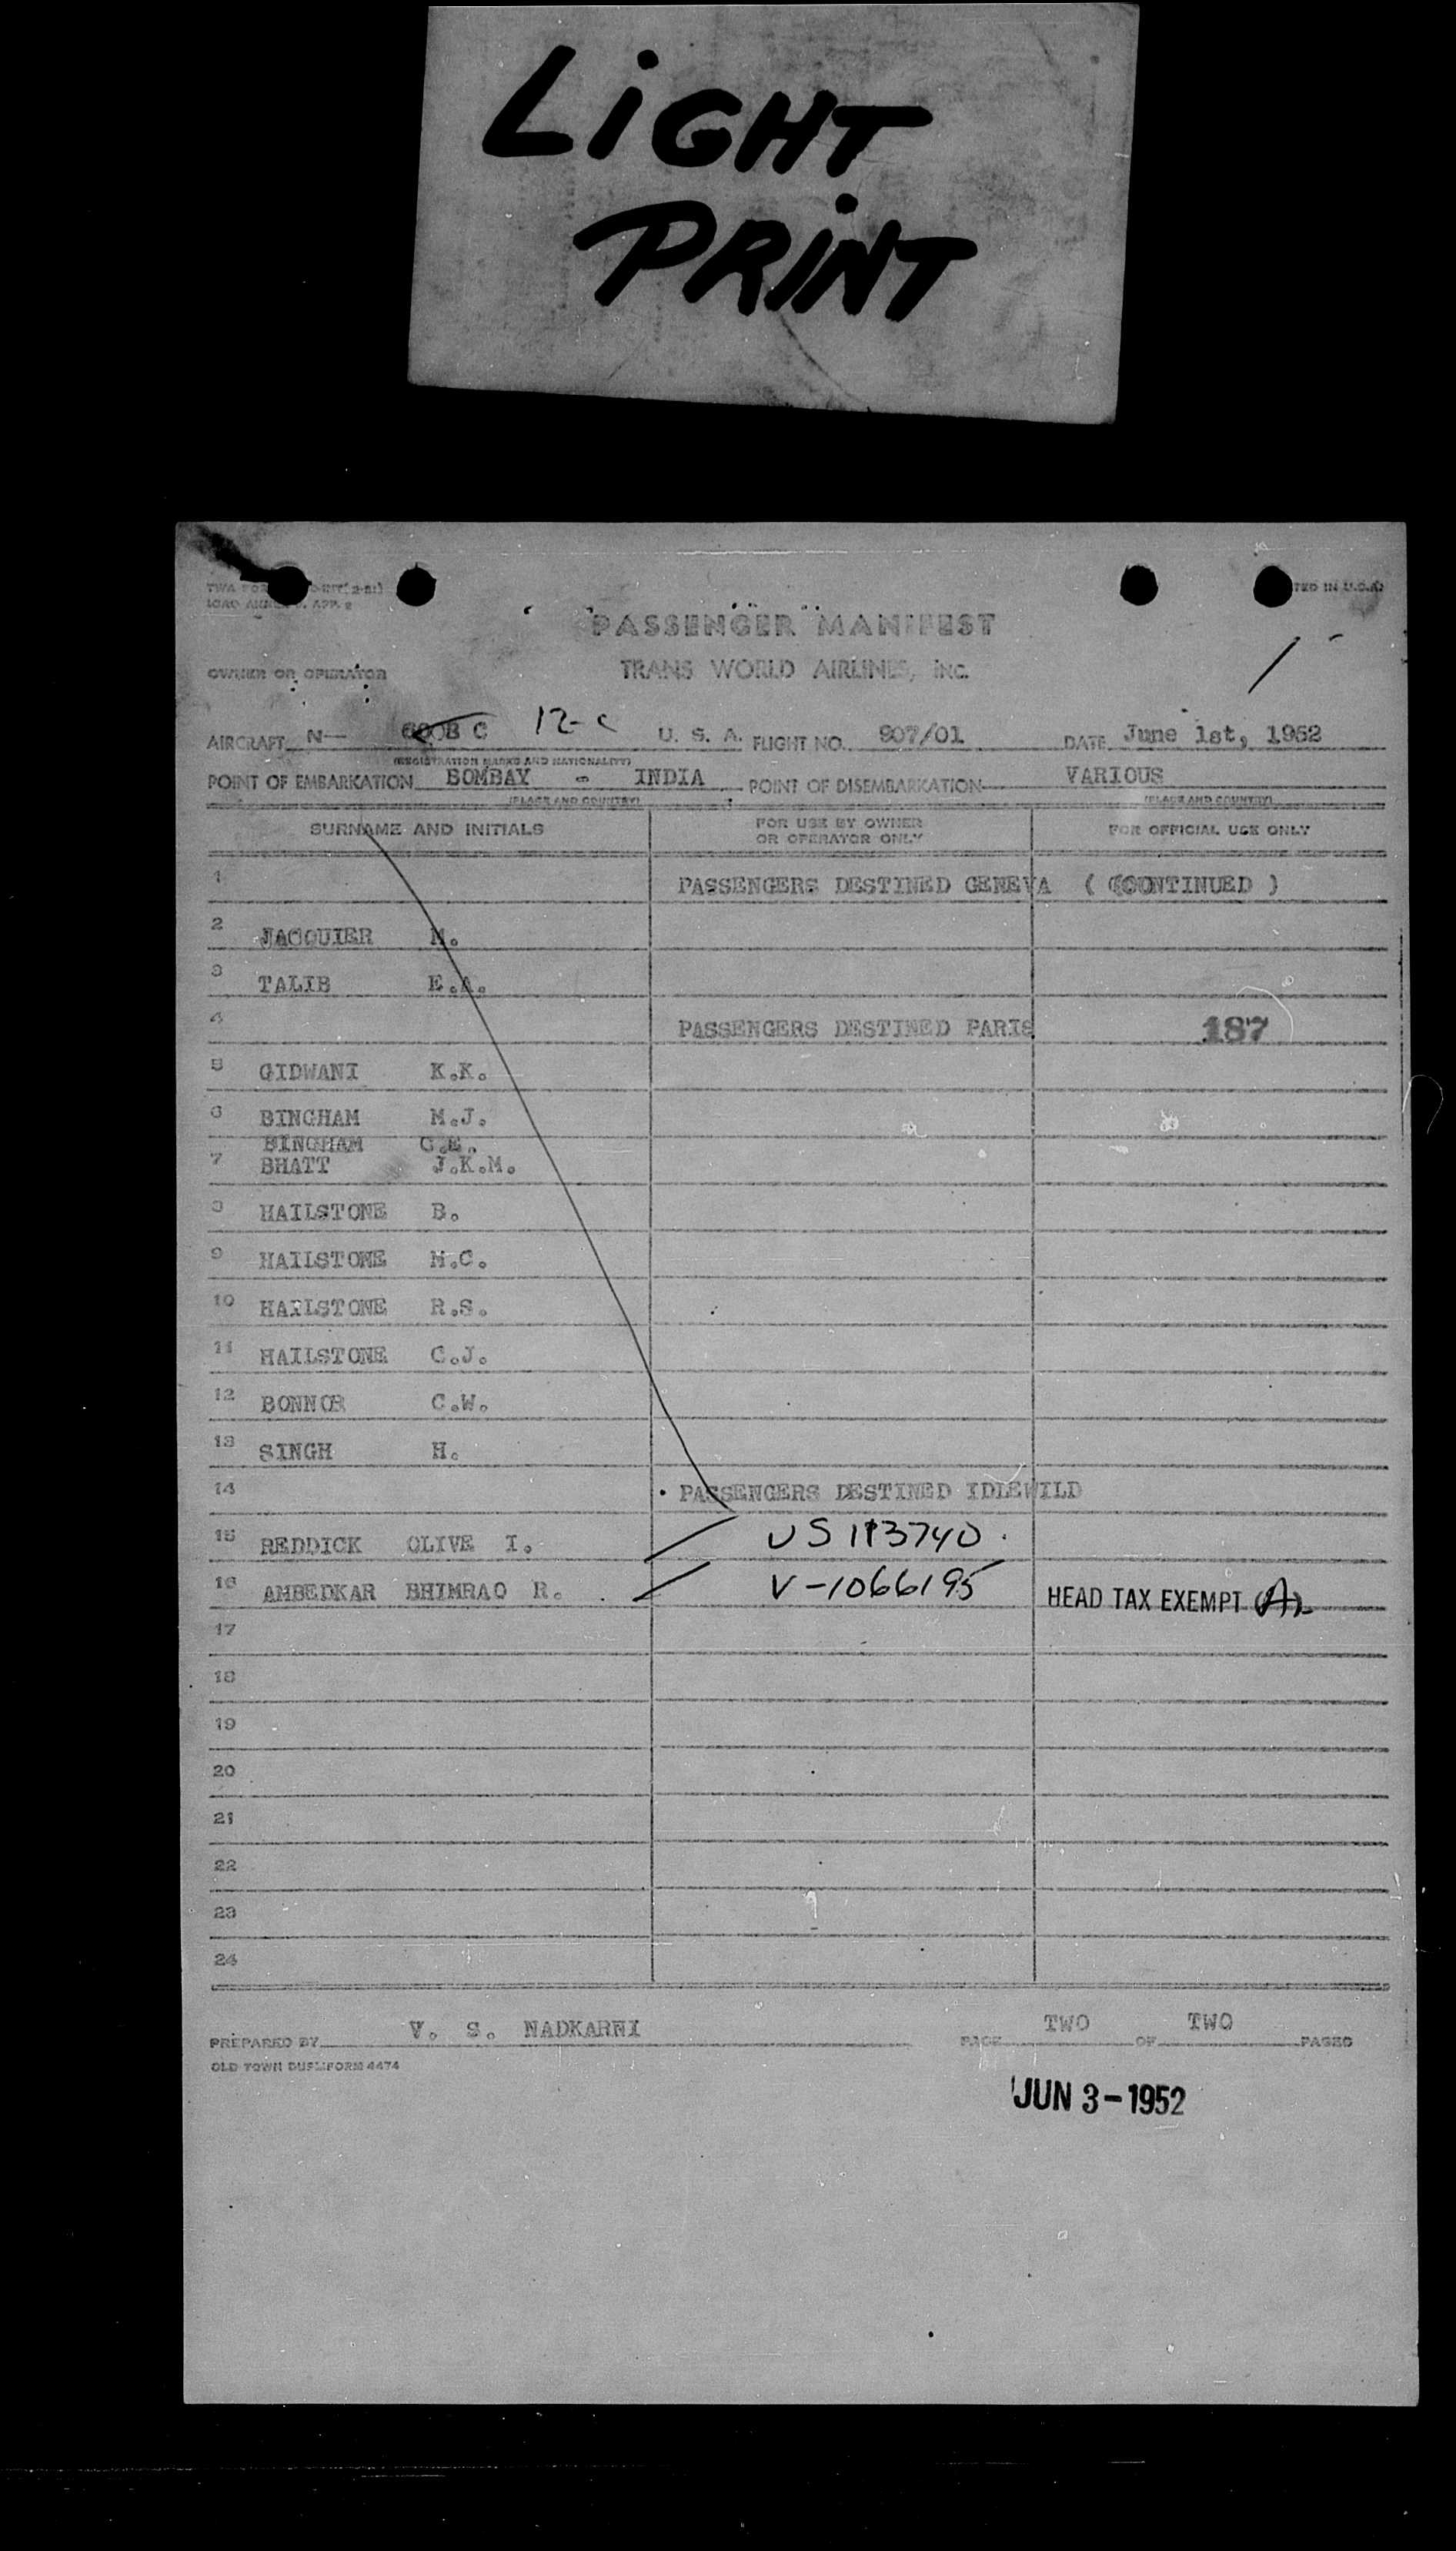 LiGHT
PRiNT
PASSENGER MANIFEST
OWNER OR OPERATOR TRANS WORLD AIRLINES, INC.
AIRCRAFT N- 12-C U. S. A. FLIGHT NO. 907/01 DATE June 1st, 1952
(REGISTRATION MARKS AND NATIONALITY)
POINT OF EMBARKATION BOMBAY - INDIA POINT OF DISEMBARKATION VARIOUS
(PLACE AND COUNTRY) (PLACE AND COUNTRY)
SURNAME AND INITIALS FOR USE BY OWNER OR OPERATOR ONLY FOR OFFICIAL USE ONLY
1 PASSENGERS DESTINED GENEVA ( CONTINUED )
2 JACQUIER M.
3 TALIB E.A.
4 PASSENGERS DESTINED PARIS 187
5 GIDWANI K.K.
6 BINGHAM M.J.
BINGHAM G.E.
7 BHATT J.K.M.
8 HAILSTONE B.
9 HAILSTONE M.C.
10 HAILSTONE R.S.
11 HAILSTONE C.J.
12 BONNOR C.W.
13 SINGH H.
14 PASSENGERS DESTINED IDLEWILD
15 REDDICK OLIVE I. US 113740
16 AMBEDKAR BHIMRAO R. V-1066195 HEAD TAX EXEMPT (A)
17
18
19
20
21
22
23
24
PREPARED BY V. S. NADKARNI PAGE TWO OF TWO PAGES
OLD TOWN DUPLIFORM 4474
JUN 3-1952